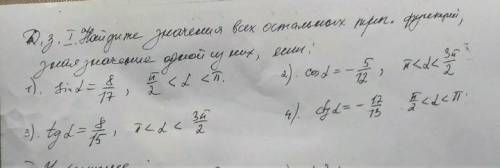 Д.з. I. Найдите значения всех остальных триг. функций,
зная значение одной из них, если:
1). sin α = 8/17, π/2 < α < π. 2). cos α = -5/12, π < α < 3π/2
3). tg α = 8/15, π < α < 3π/2 4). ctg α = -12/13 π/2 < α < π.